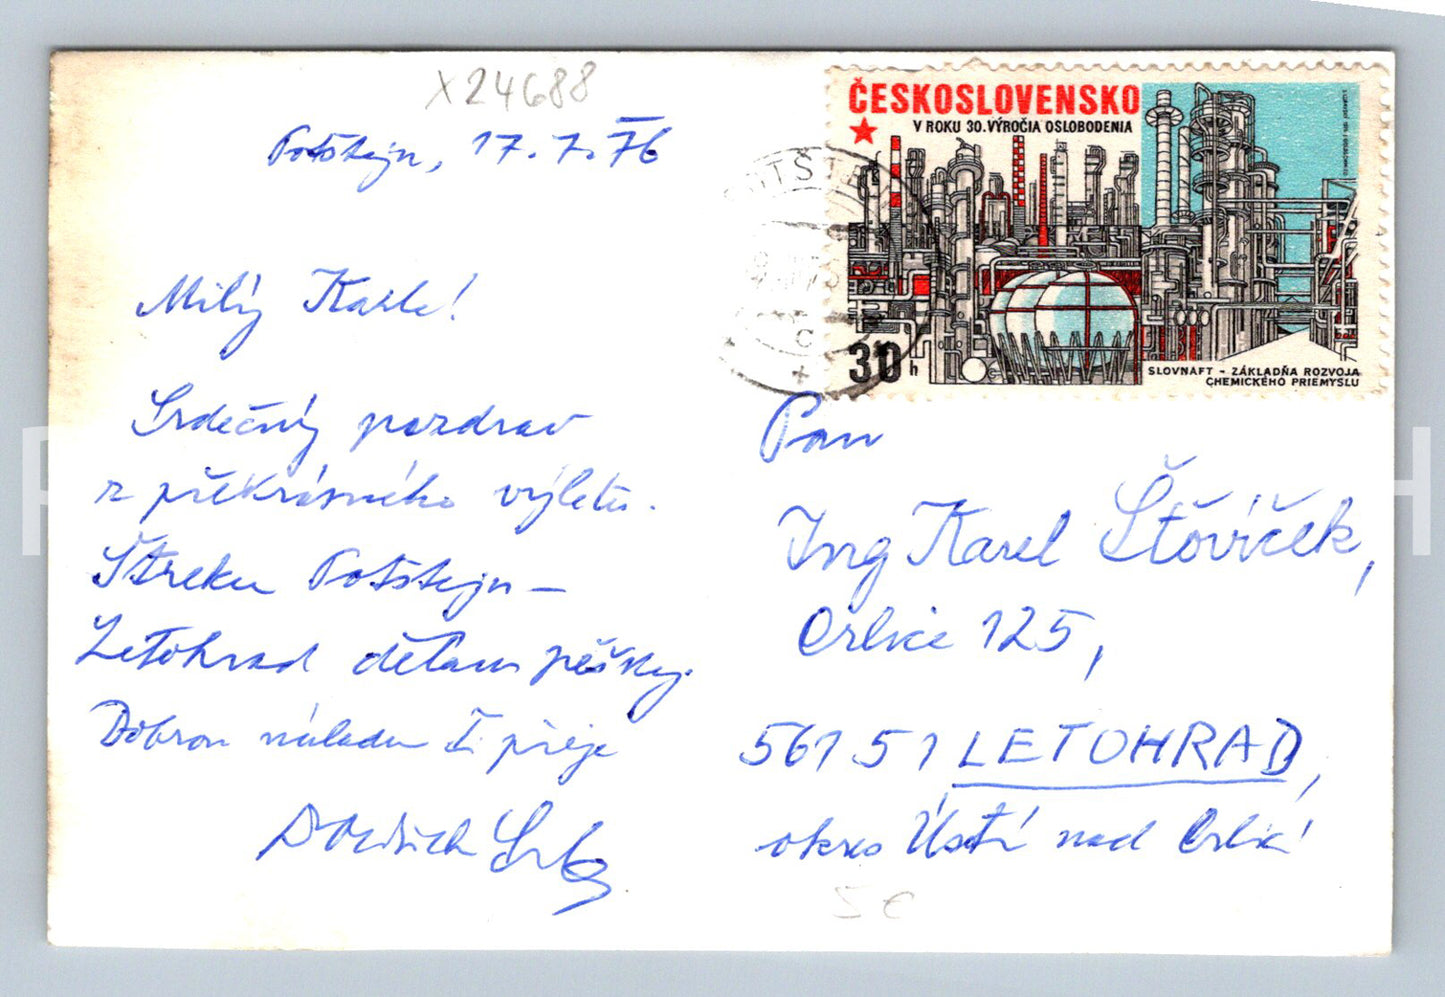 X24688
Potštejn, 17.7.76
Milý Karle!
Srdečný pozdrav
z překrásného výletu.
Štreku Potštejn –
Letohrad dělam pěšky.
Dobrou náladu Ti přeje
Oldřich
Pan
Ing Karel Šťovíček,
Orlice 125,
561 51 LETOHRAD,
okres Ústí nad Orlicí
5 €
ČESKOSLOVENSKO
V ROKU 30. VÝROČIA OSLOBODENIA
30 h
SLOVNAFT - ZÁKLADŇA ROZVOJA
CHEMICKÉHO PRIEMYSLU